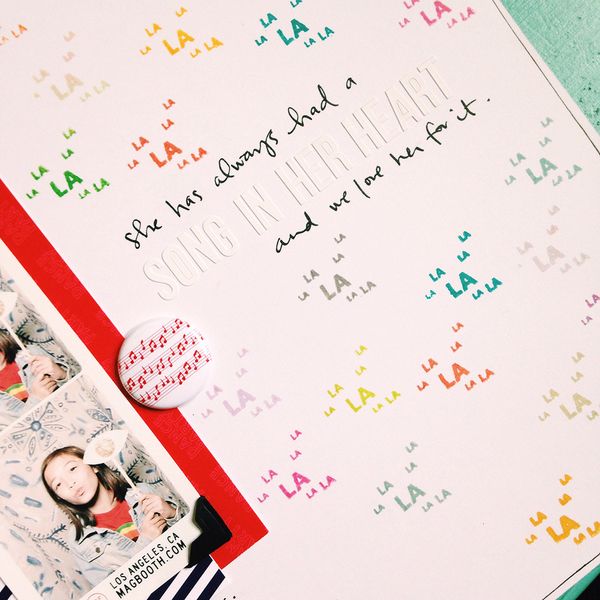 LA
LA LA
LA LA LA LA
LA
LA LA
LA LA LA LA
LA
LA LA
LA LA LA LA
LA
LA LA
LA LA LA LA
LA
LA LA
LA LA LA LA
she has always had a
SONG IN HER HEART
and we love her for it.
LA
LA LA
LA LA LA LA
LA
LA LA
LA LA LA LA
LA
LA LA
LA LA LA LA
LA
LA LA
LA LA LA LA
LA
LA LA
LA LA LA LA
LA
LA LA
LA LA LA LA
LA
LA LA
LA LA LA LA
LA
LA LA
LA LA LA LA
LA
LA LA
LA LA LA LA
LOS ANGELES, CA
MAGBOOTH.COM